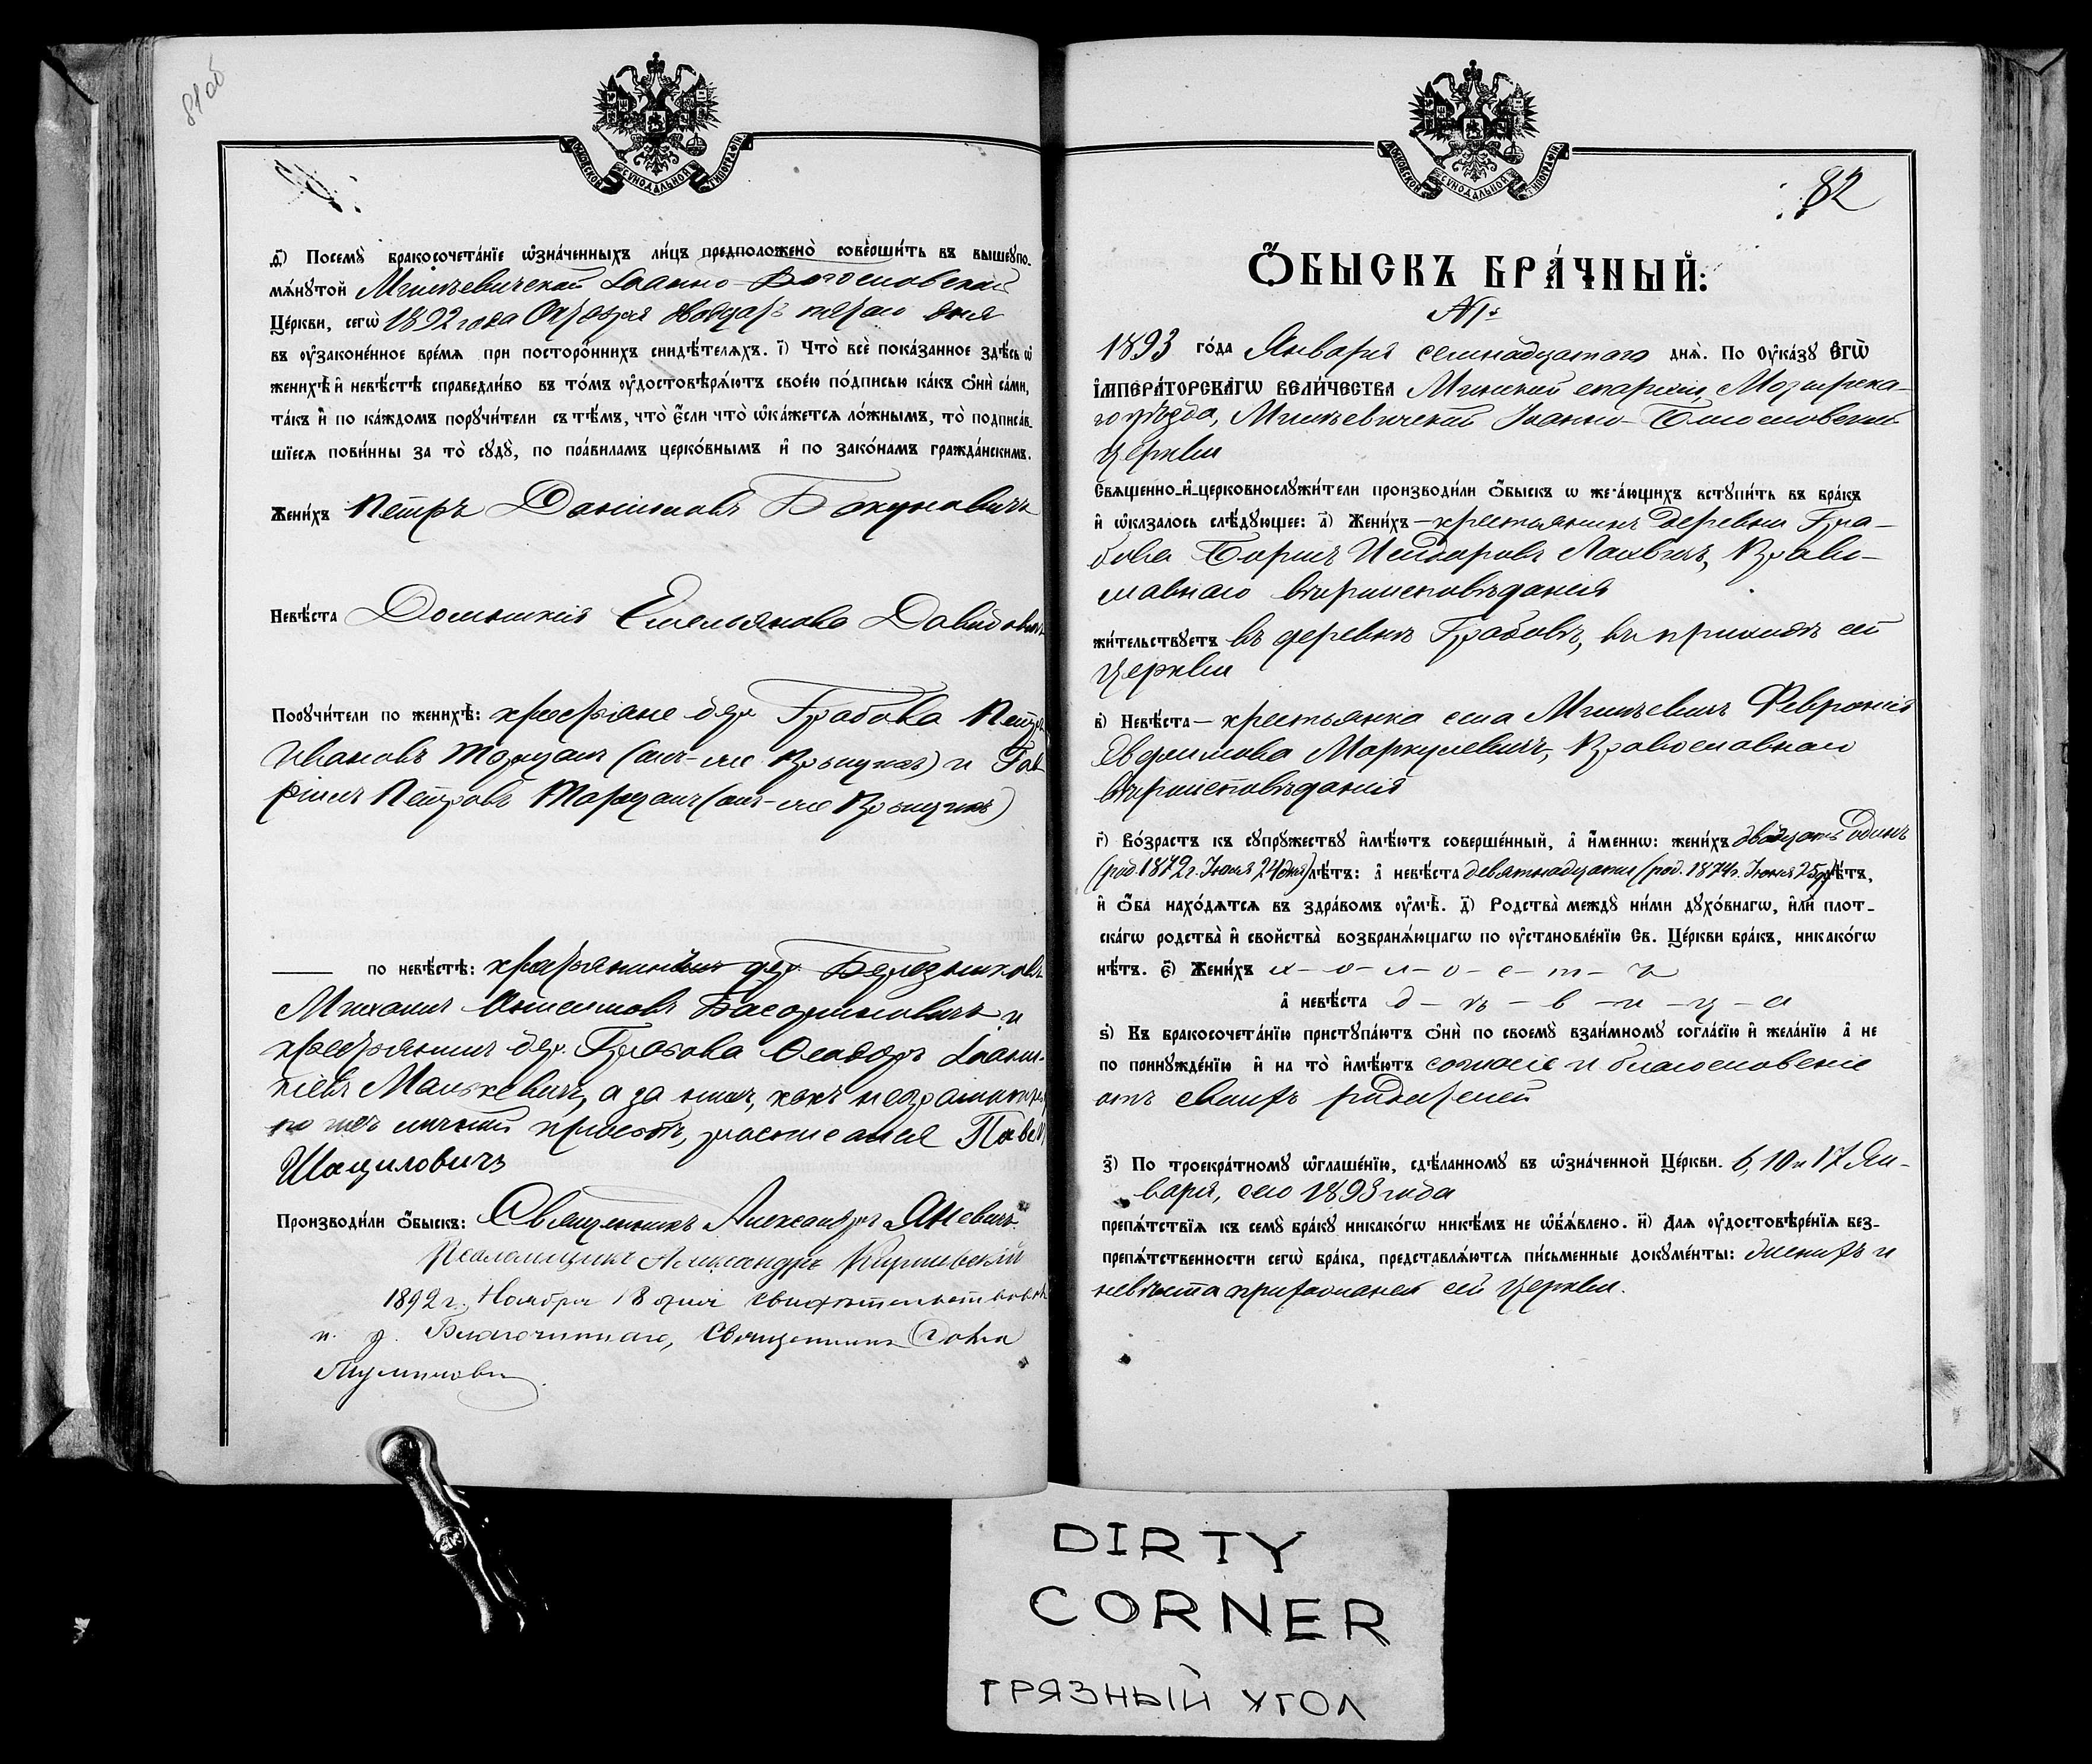 81 об
МОСКОВСКОЙ СѴНОДАЛЬНОЙ ТИПОГРАФІИ
ѳ҃) Посемꙋ̀ бракосочета́нїе ѡ҆зна́ченныхъ ли́цъ предположено̀ соверши́ть въ вышеꙋпо-
мѧ́нꙋтой Мышевичской Іоанно-Богословской
Це́ркви, сегѡ̀ 1892 года Октября двадцать пятаго дня
въ ᲂу҆законе́нное вре́мѧ при посторо́ннихъ свидѣ́телѧхъ. і҃) Что̀ всѐ пока́занное здѣ́сь ѡ҆
женихѣ̀ и҆ невѣ́стѣ справедли́во въ то́мъ ᲂу҆достовѣрѧ́ютъ свое́ю по́дписью ка́къ ѻ҆нѝ са́ми,
та́къ и҆ по ка́ждомъ порꙋчи́тели съ тѣ́мъ, что̀ є҆́сли что̀ ѡ҆ка́жетсѧ ло́жнымъ, то̀ подписа́в-
шїесѧ пови́нны за то̀ сꙋдꙋ̀, по пра́виламъ церко́внымъ и҆ по зако́намъ гражда́нскимъ.
Жени́хъ Петръ Даніиловъ Бокуновичъ
Невѣ́ста Домникія Емельянова Давидович
Порꙋчи́тели по женихѣ̀: крестьяне дер. Грабова Петръ
Ивановъ (онъ-же) и Гав
ріилъ Петровъ (онъ-же)
по невѣ́стѣ: дер. Березняковъ
Михаилъ и
крестьянинъ дер. Грабова Ѳеодоръ Іоанни-
кіевъ Малькевичъ, а за нихъ, какъ неграмотн
по ихъ личной просьбѣ, росписался Павел
Шациловичъ
Производи́ли ѻ҆́быскъ: Священникъ Александръ Яневичъ.
Псаломщикъ Александръ
1892 г. Ноября 18 дня свидѣтельствовалъ
и. д. Благочиннаго, Священникъ
82
Ѻ҆́БЫСКЪ БРА́ЧНЫЙ:
№
1893 го́да Января семнадцатаго днѧ̀. По ᲂу҆ка́зꙋ Е҆ГѠ̀
І҆МПЕРА́ТОРСКАГѠ ВЕЛИ́ЧЕСТВА Минской епархіи, Мозырска-
го уѣзда, Мышевичской Іоанно-Богословской
церкви
Свѧщенно-и҆-церковнослꙋжи́тели производи́ли ѻ҆́быскъ ѡ же а́ющихъ встꙋпи́ть въ бра́къ
и҆ ѡ҆казалось слѣ́дꙋющее: а҃) Жени́хъ – крестьянинъ деревни Гра-
бова Борисъ Исидоровъ, Право-
славнаго вѣроисповѣданія
жи́тельствꙋетъ въ деревнѣ Грабовѣ, въ приходѣ сей
церкви
в҃) Невѣ́ста – крестьянка села Мышевичъ Февронія
Евфимова Маркулевичъ, Православнаго
вѣроисповѣданія
г҃) Во́зрастъ къ сꙋпрꙋ́жествꙋ и҆мѣ́ютъ соверше́нный, а҆ и҆́меннѡ: жени́хъ двадцать одинъ
(род. 1872 г. Іюля 24 дня) лѣ́тъ: а҆ невѣ́ста девятнадцати (род. 1874 г. Іюня 25 дня) лѣ́тъ,
и҆ ѻ҆́ба нахо́дѧтсѧ въ здра́вомъ ᲂу҆мѣ̀. д҃) Родства̀ междꙋ ни́ми дꙋхо́внагѡ, и҆лѝ плот-
ска́гѡ родства̀ и҆ свойства̀ возбранѧ́ющагѡ по ᲂу҆становле́нїю Св. Це́ркви бра́къ, никако́гѡ
нѣ́тъ. є҃) Жени́хъ х-о-л-о-с-т-ъ
а҆ невѣ́ста д-ѣ-в-и-ц-а
ѕ҃) Въ бракосочета́нїю пристꙋпа́ютъ ѻ҆нѝ по своемꙋ̀ взаи́мномꙋ согла́сїю и҆ жела́нїю а҆ не
по принꙋжде́нїю и҆ на то̀ и҆мѣ́ютъ согласіе и благословеніе
отъ своихъ родителей
з҃) По троекра́тномꙋ ѡ҆глаше́нїю, сдѣ́ланномꙋ въ ѡ҆зна́ченной Це́ркви. 6, 10 и 17 Ян-
варя, сего 1893 года
препѧ́тствїѧ къ семꙋ̀ бра́кꙋ никако́гѡ никѣ́мъ не ѡ҆б̾ѧ́влено. и҃) Длѧ ᲂу҆достовѣре́нїѧ без-
препѧ́тственности сегѡ̀ бра́ка, представлѧ́ютсѧ пи́сьменные докꙋме́нты: женихъ и
невѣста прихожане сей церкви.
DIRTY
CORNER
ГРЯЗНЫЙ УГОЛ